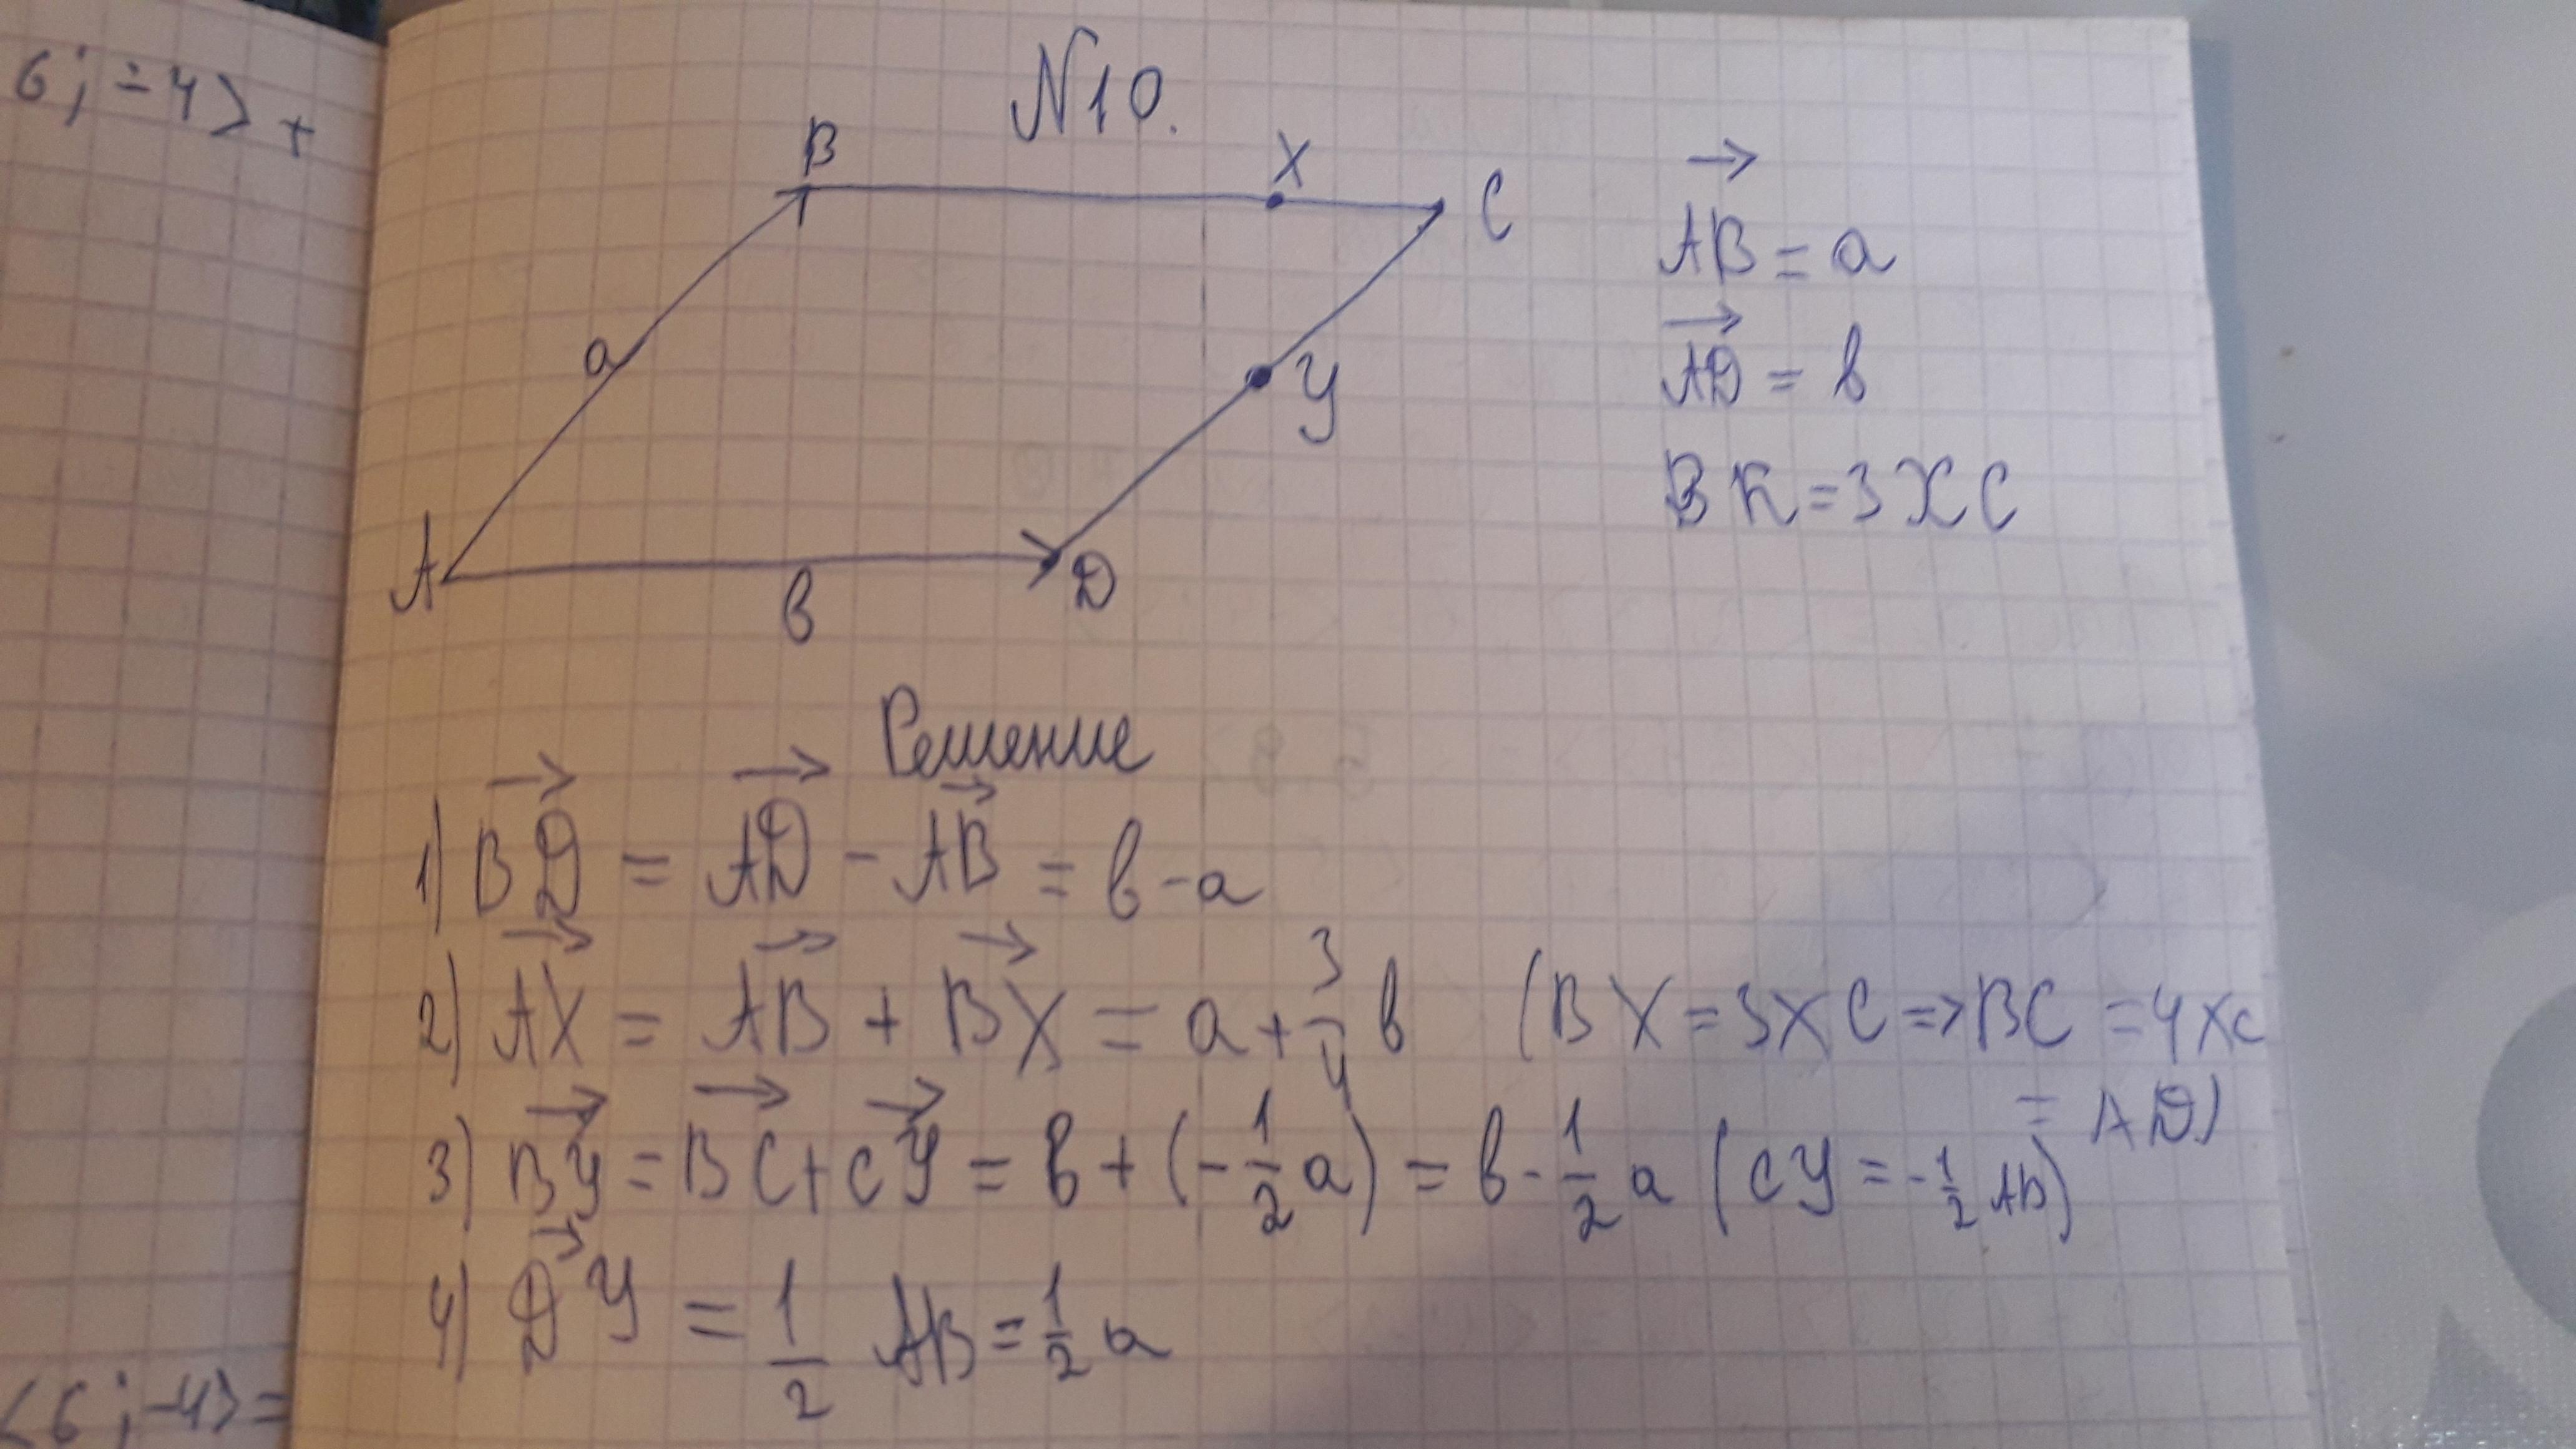 6 ; -4> +
N10.
B
X
C
a
У
A
в
D
AB = a
AD = в
BK = 3XC
Решение
1) BD = AD - AB = в - a
2) AX = AB + BX = a + 3/4 в (BX = 3XC => BC = 4XC
= AD)
3) BУ = BC + CУ = в + (-1/2 a) = в - 1/2 a (CУ = -1/2 AB)
4) DУ = 1/2 AB = 1/2 a
<6 ; -4> =